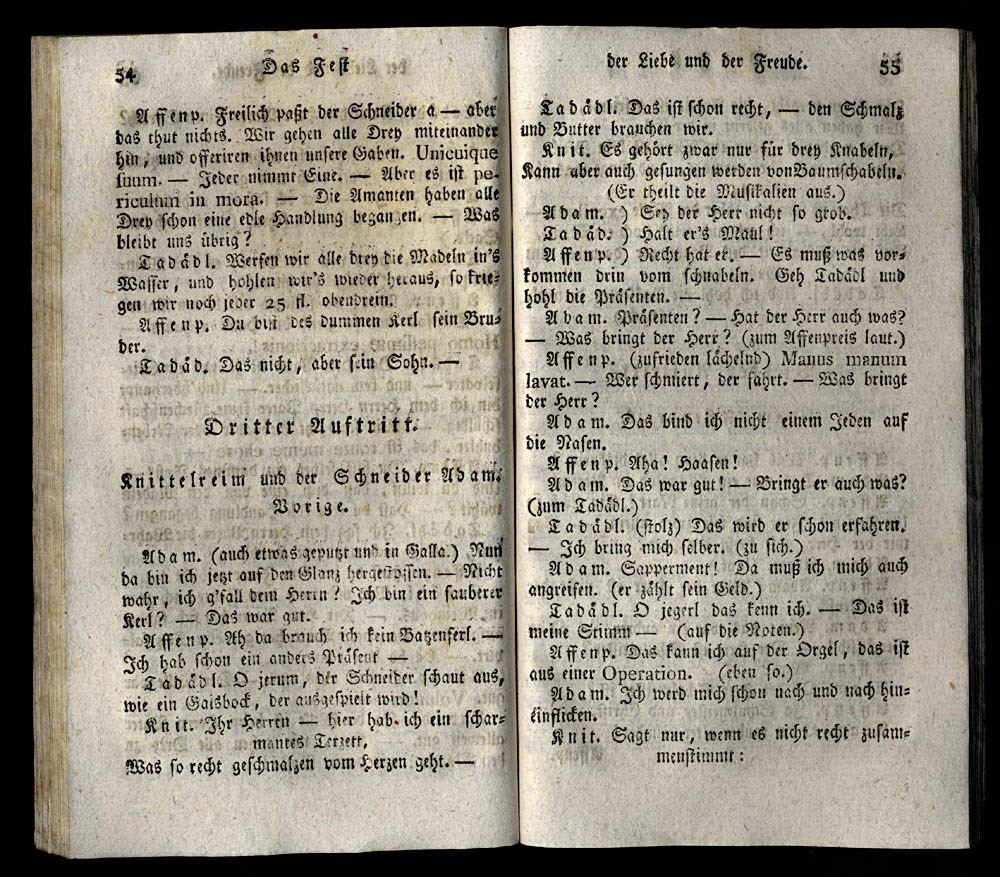 54 Das Fest
Affenp. Freilich paßt der Schneider a — aber
das thut nichts. Wir gehen alle Drey miteinander
hin, und offeriren ihnen unsere Gaben. Unicuique
suum. — Jeder nimmt Eine. — Aber es ist pe-
riculum in mora. — Die Amanten haben alle
Drey schon eine edle Handlung begangen. — Was
bleibt uns übrig?
Tadädl. Werfen wir alle drey die Madeln in's
Wasser, und hohlen wir's wieder heraus, so krie-
gen wir noch jeder 25 fl. obendrein.
Affenp. Du bist des dummen Kerl sein Bru-
der.
Tadäd. Das nicht, aber sein Sohn. —
Dritter Auftritt.
Knittelreim und der Schneider Adam.
Vorige.
Adam. (auch etwas geputzt und in Galla.) Nun
da bin ich jetzt auf den Glanz hergestossen. — Nicht
wahr, ich g'fall dem Herrn? Ich bin ein sauberer
Kerl? — Das war gut.
Affenp. Ah da brauch ich kein Batzenferl. —
Ich hab schon ein anders Präsent —
Tadädl. O jerum, der Schneider schaut aus,
wie ein Gaisbock, der ausgespielt wird!
Knit. Ihr Herren — hier hab ich ein schar-
mantes Terzett,
Was so recht geschmalzen vom Herzen geht. —
der Liebe und der Freude. 55
Tadädl. Das ist schon recht, — den Schmalz
und Butter brauchen wir.
Knit. Es gehört zwar nur für drey Knabeln,
Kann aber auch gesungen werden von Baumschabeln.
(Er theilt die Musikalien aus.)
Adam. ) Sey der Herr nicht so grob.
Tadäd. ) Halt er's Maul!
Affenp. ) Recht hat er. — Es muß was vor-
kommen drin vom schnabeln. Geh Tadädl und
hohl die Präsenten. —
Adam. Präsenten? — Hat der Herr auch was?
— Was bringt der Herr? (zum Affenpreis laut.)
Affenp. (zufrieden lächelnd) Manus manum
lavat. — Wer schmiert, der fahrt. — Was bringt
der Herr?
Adam. Das bind ich nicht einem Jeden auf
die Nasen.
Affenp. Aha! Haasen!
Adam. Das war gut! — Bringt er auch was?
(zum Tadädl.)
Tadädl. (stolz) Das wird er schon erfahren.
— Ich bring mich selber. (zu sich.)
Adam. Sapperment! Da muß ich mich auch
angreifen. (er zählt sein Geld.)
Tadädl. O jegerl das kenn ich. — Das ist
meine Stimm — (auf die Noten.)
Affenp. Das kann ich auf der Orgel, das ist
aus einer Operation. (eben so.)
Adam. Ich werd mich schon nach und nach hin-
einflicken.
Knit. Sagt nur, wenn es nicht recht zusam-
menstimmt: